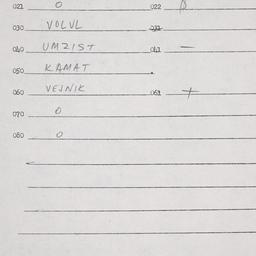 021 0 022 0
030 VOLVL 032
040 UMZIST 041 —
050 KAMAT
060 VEJNIK 061 +
070 0
080 0